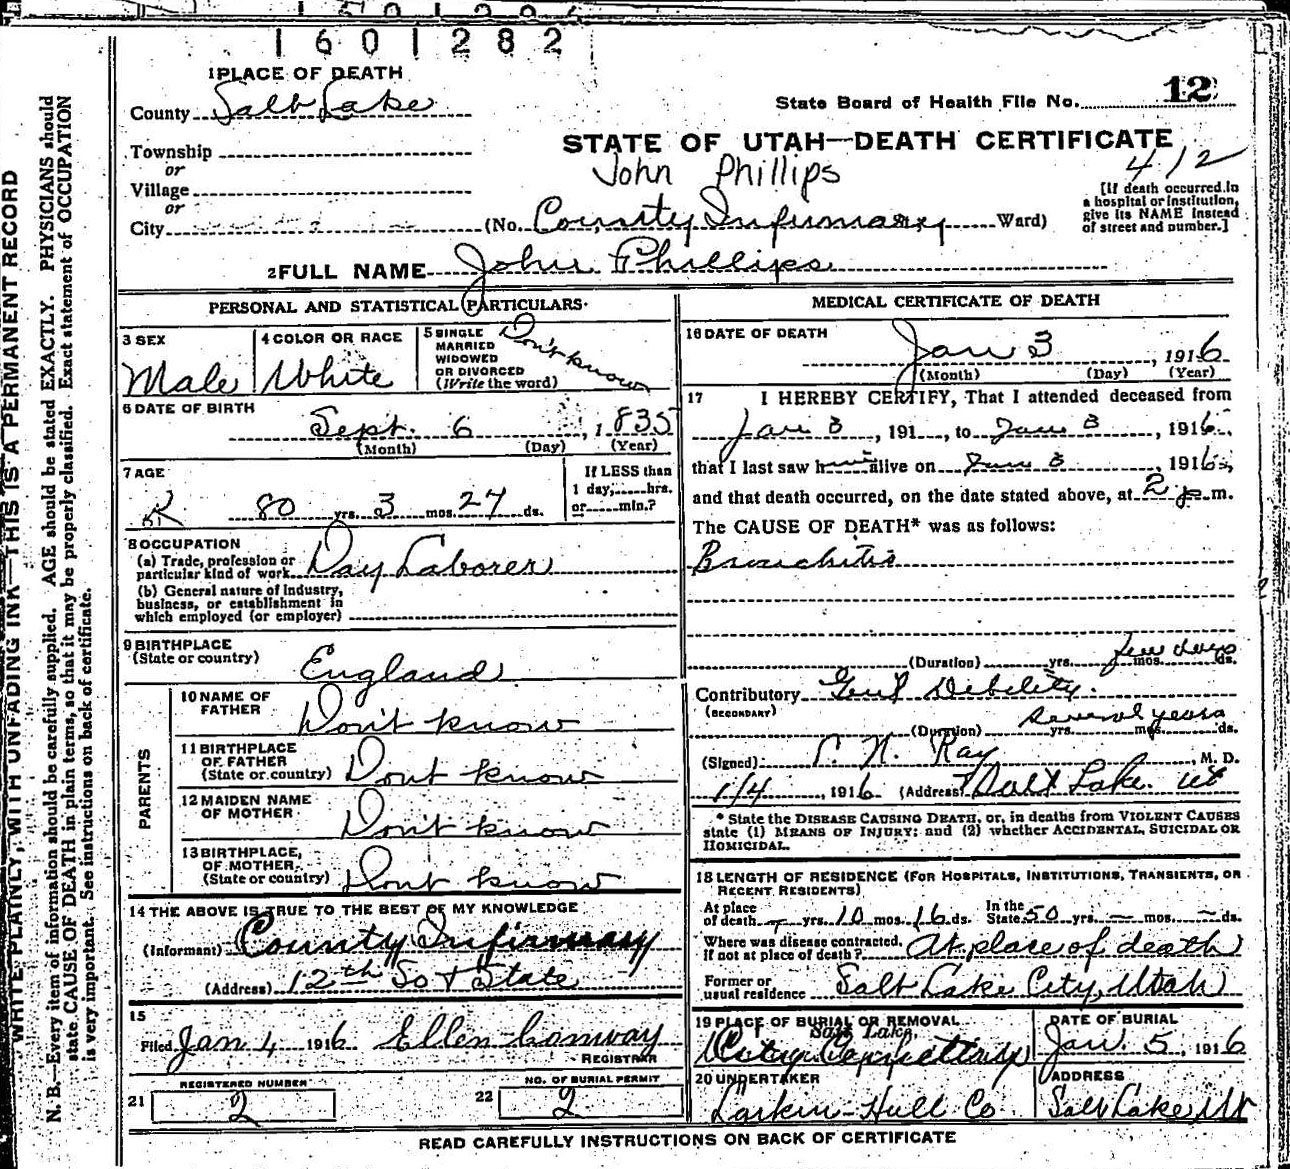 1601282
1 PLACE OF DEATH
County Salt Lake
State Board of Health File No. 12
STATE OF UTAH—DEATH CERTIFICATE
Township
or
Village
or
City
John Phillips
412
(No. County Infirmary Ward)
[If death occurred in
a hospital or institution,
give its NAME instead
of street and number.]
2 FULL NAME John Phillips
PERSONAL AND STATISTICAL PARTICULARS
3 SEX
Male
4 COLOR OR RACE
White
5 SINGLE
MARRIED
WIDOWED
OR DIVORCED
(Write the word)
Don't know
6 DATE OF BIRTH
Sept. 6, 1835
(Month) (Day) (Year)
7 AGE
80 yrs. 3 mos. 27 ds.
If LESS than
1 day, hrs.
or min.?
8 OCCUPATION
(a) Trade, profession or
particular kind of work Day Laborer
(b) General nature of Industry,
business, or establishment in
which employed (or employer)
9 BIRTHPLACE
(State or country)
England
PARENTS
10 NAME OF
FATHER
Don't know
11 BIRTHPLACE
OF FATHER
(State or country) Dont know
12 MAIDEN NAME
OF MOTHER
Don't know
13 BIRTHPLACE,
OF MOTHER,
(State or country) Dont know
14 THE ABOVE IS TRUE TO THE BEST OF MY KNOWLEDGE
(Informant) County Infirmary
(Address) 12th So & State
15
Filed Jan 4 1916 Ellen Conway
REGISTRAR
REGISTERED NUMBER
21 2
NO. OF BURIAL PERMIT
22 2
MEDICAL CERTIFICATE OF DEATH
16 DATE OF DEATH
Jan 3, 1916
(Month) (Day) (Year)
17 I HEREBY CERTIFY, That I attended deceased from
Jan 3, 191 , to Jan 3, 1916,
that I last saw him alive on Jan 3, 1916,
and that death occurred, on the date stated above, at 2 p.m.
The CAUSE OF DEATH* was as follows:
Bronchitis
few days
(Duration) yrs. mos. ds.
Contributory Gen'l Debility.
(SECONDARY)
several years
(Duration) yrs. mos. ds.
(Signed) Ray, M. D.
1/4, 1916 (Address) Salt Lake. Ut
* State the DISEASE CAUSING DEATH, or, in deaths from VIOLENT CAUSES
state (1) MEANS OF INJURY; and (2) whether ACCIDENTAL, SUICIDAL OR
HOMICIDAL.
18 LENGTH OF RESIDENCE (FOR HOSPITALS, INSTITUTIONS, TRANSIENTS, OR
RECENT RESIDENTS)
At place
of death – yrs. 10 mos. 16 ds. In the
State 50 yrs. – mos. – ds.
Where was disease contracted,
If not at place of death? At place of death
Former or
usual residence Salt Lake City, Utah
19 PLACE OF BURIAL OR REMOVAL
Salt Lake,
City
DATE OF BURIAL
Jan. 5, 1916
20 UNDERTAKER
Larkin-Hull Co
ADDRESS
Salt Lake, Ut
READ CAREFULLY INSTRUCTIONS ON BACK OF CERTIFICATE
WRITE PLAINLY, WITH UNFADING INK—THIS IS A PERMANENT RECORD
N. B.—Every item of information should be carefully supplied. AGE should be stated EXACTLY. PHYSICIANS should
state CAUSE OF DEATH in plain terms, so that it may be properly classified. Exact statement of OCCUPATION
is very important. See instructions on back of certificate.